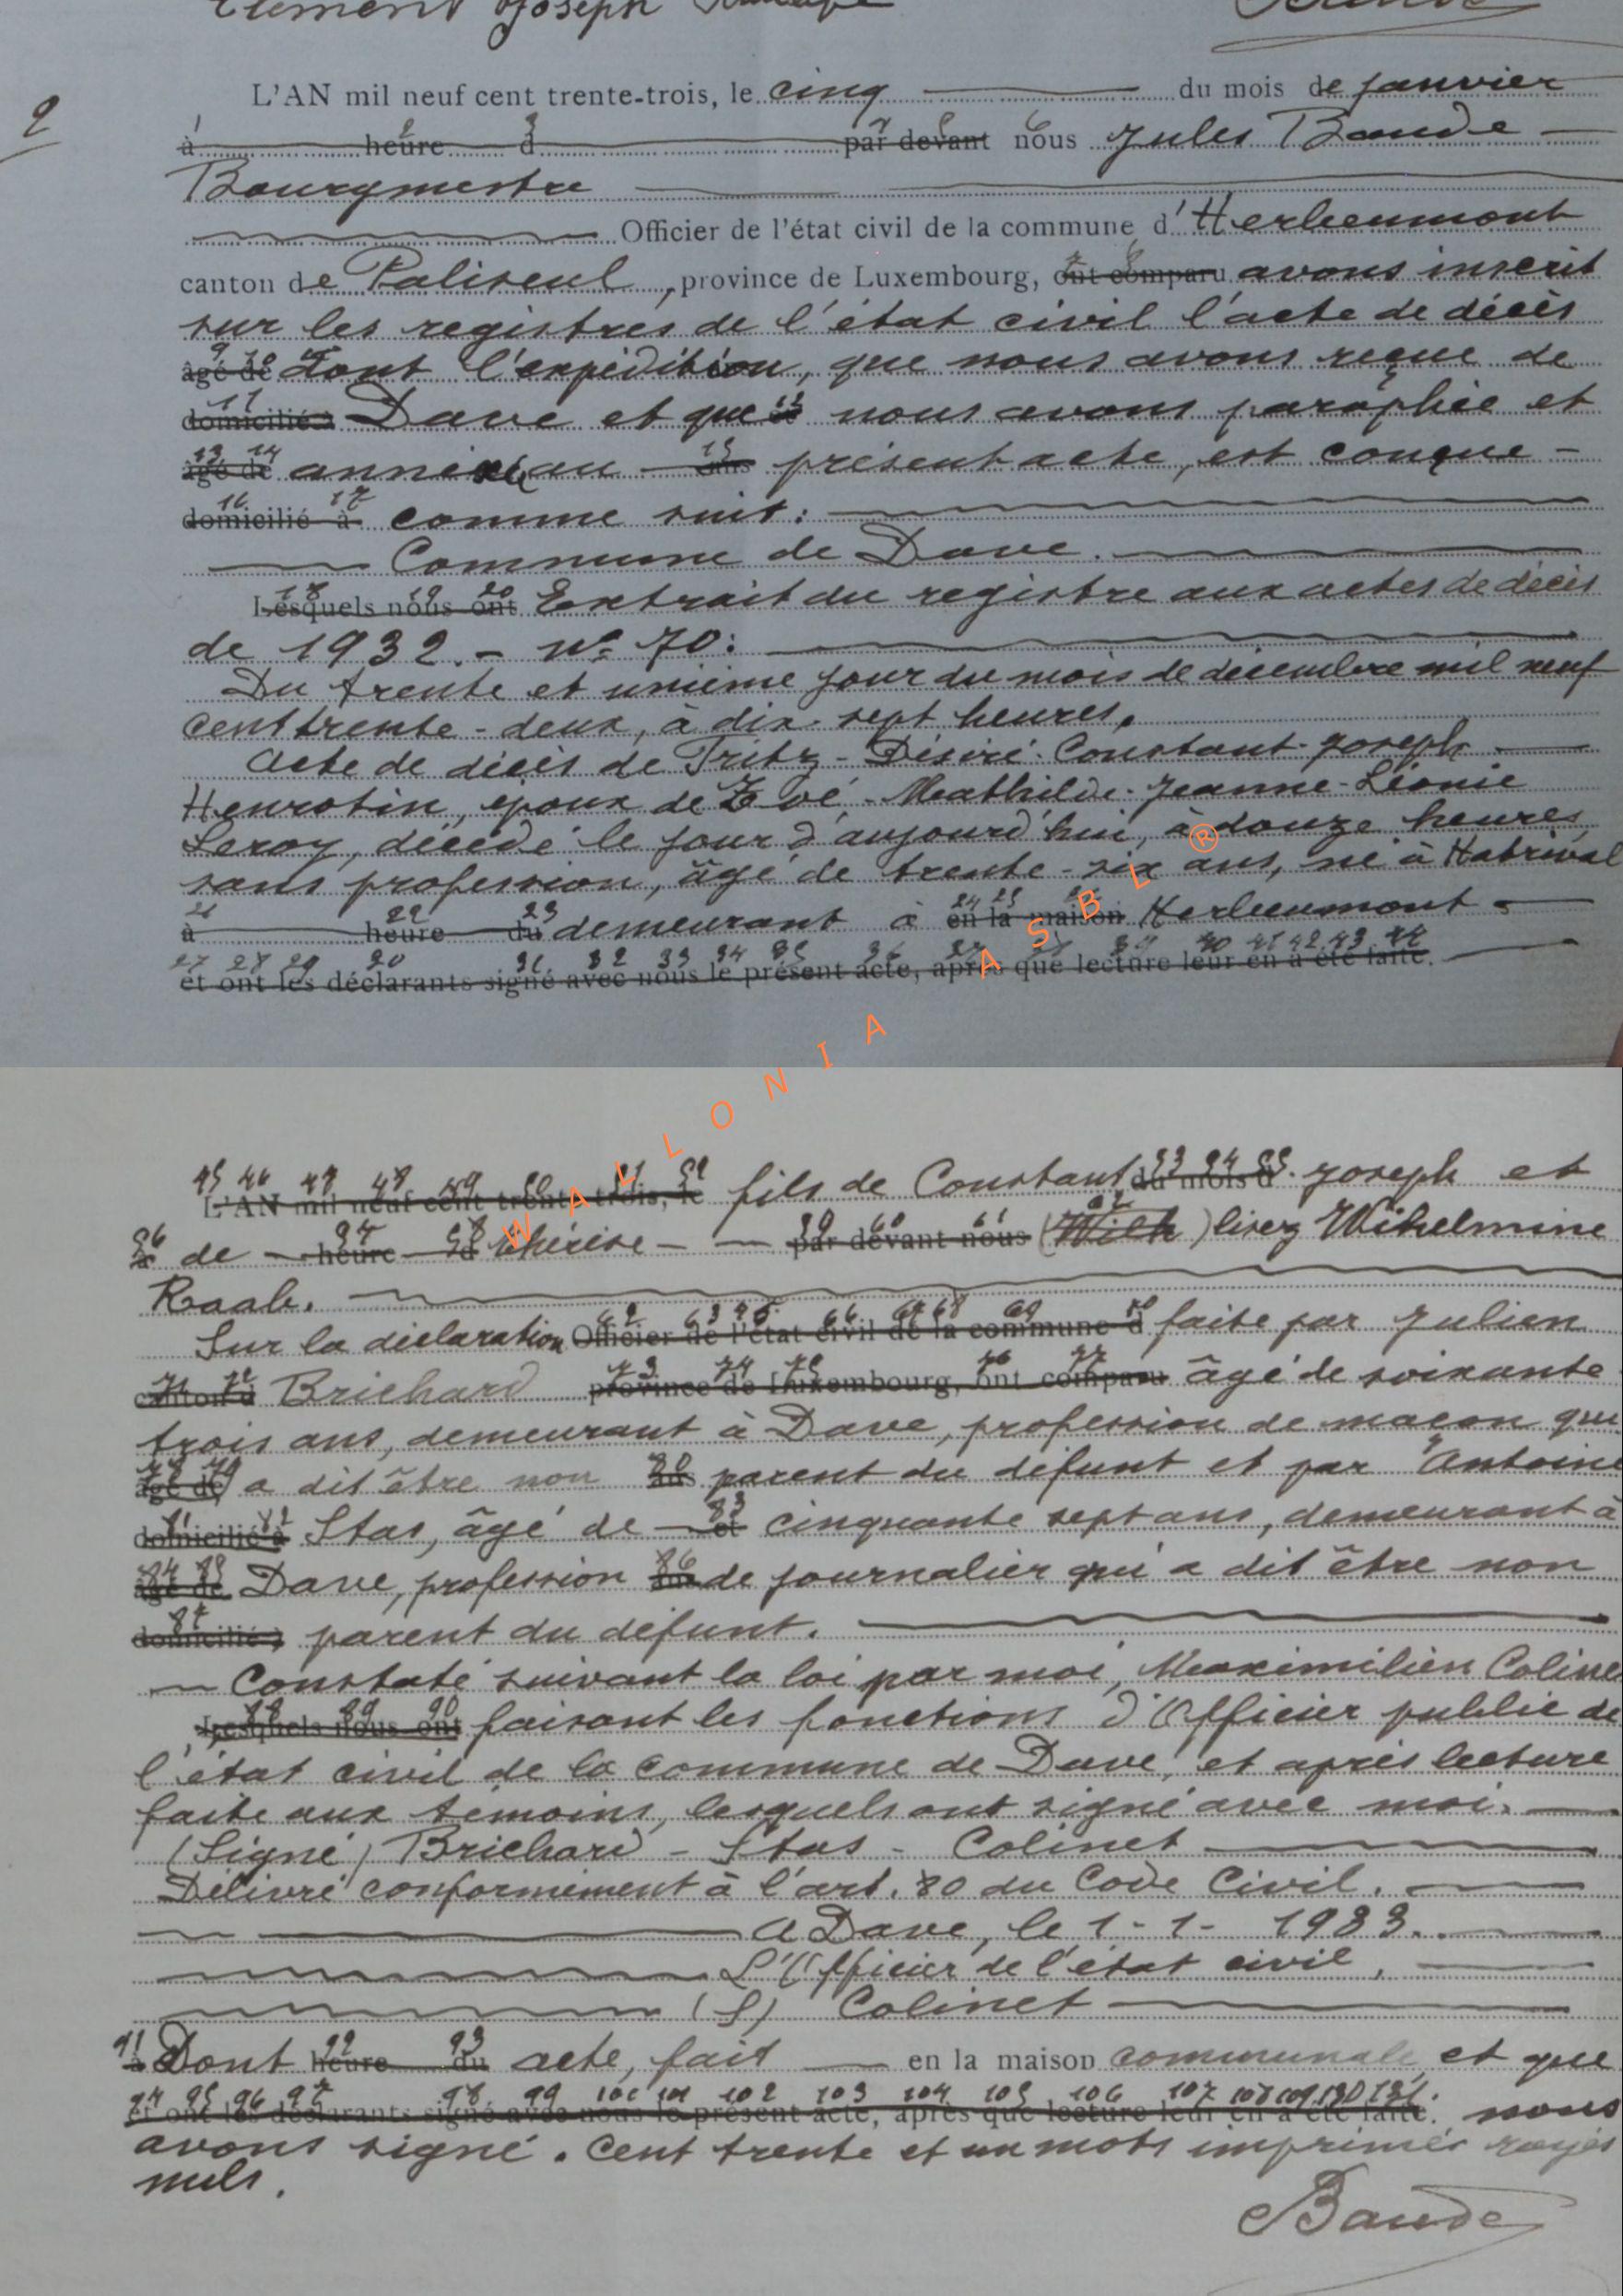 Clément Joseph
2
L'AN mil neuf cent trente-trois, le cinq du mois de janvier
à heure d par devant nous Jules Baude
Bourgmestre
Officier de l'état civil de la commune d'Herbeumont
canton de Paliseul, province de Luxembourg, ont comparu avons inscrit
sur les registres de l'état civil l'acte de décès
âgé de dont l'expédition, que nous avons reçue de
domicilié à Dave et que nous avons paraphée et
âgé de annexée au ans présent acte, est conçue
domicilié à comme suit:
Commune de Dave.
Lesquels nous ont Extrait du registre aux actes de décès
de 1932. - N° 70:
Du trente et unième jour du mois de décembre mil neuf
cent trente-deux, à dix-sept heures,
Acte de décès de Fritz-Désiré-Constant-Joseph
Henrotin, époux de Zoé-Mathilde-Jeanne-Léonie
Leroy, décédé le jour d'aujourd'hui, à douze heures
sans profession, âgé de trente-six ans, né à Hatrival
à heure du demeurant à en la maison Herbeumont
et ont les déclarants signé avec nous le présent acte, après que lecture leur en a été faite.
WALLONIA ASBL ®
L'AN mil neuf cent trente-trois, le fils de Constant du mois d Joseph et
à de heure d Thérèse par devant nous (Wilh) lisez Wihelmine
Raab.
Sur la déclaration Officier de l'état civil de la commune d faite par Julien
canton d Brichard province de Luxembourg, ont comparu âgé de soixante
trois ans, demeurant à Dave, profession de maçon qui
âgé de a dit être non ans parent du défunt et par Antoine
domicilié à Stas, âgé de et cinquante sept ans, demeurant à
âgé de Dave, profession ans de journalier qui a dit être non
domicilié à parent du défunt.
Constaté suivant la loi par moi, Maximilien Colinet
Lesquels nous ont faisant les fonctions d'Officier public de
l'état civil de la commune de Dave, et après lecture
faite aux témoins, lesquels ont signé avec moi.
(Signé) Brichard - Stas - Colinet
Délivré conformément à l'art. 80 du Code Civil.
A Dave, le 1-1-1933.
L'Officier de l'état civil,
(S) Colinet
à Dont heure du acte, fait en la maison communale et que
et ont les déclarants signé avec nous le présent acte, après que lecture leur en a été faite. nous
avons signé. Cent trente et un mots imprimés rayés
nuls.
Baude